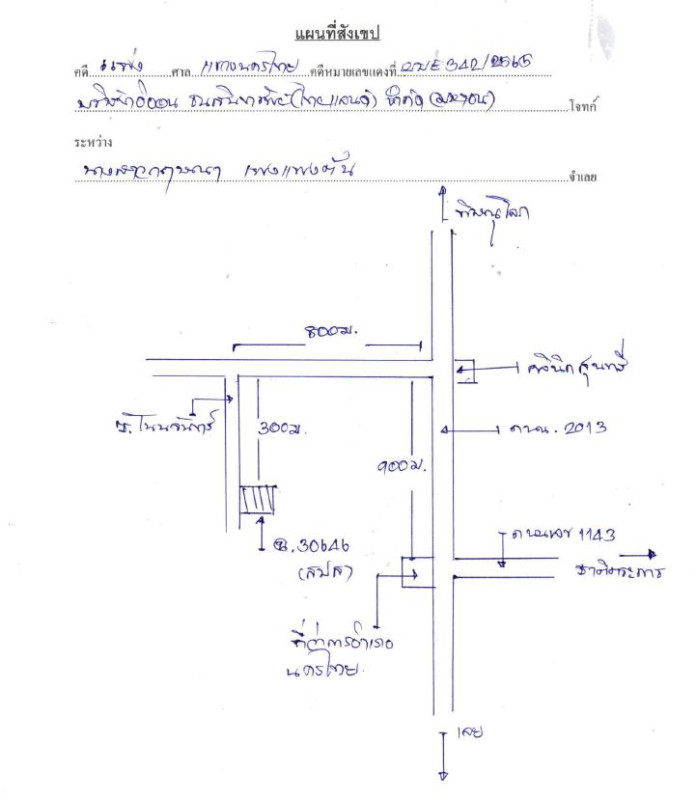 แผนที่สังเขป
คดี แพ่ง ศาล แขวงนครไทย คดีหมายเลขแดงที่ ผบE342/2565
บริษัทอิออน ธนสินทรัพย์(ไทยแลนด์) จำกัด (มหาชน) โจทก์
ระหว่าง
นางสาวกฤษณา จำเลย
พิษณุโลก
800ม.
คลินิก
ซ.โนนจันทร์
300ม.
ถนน. 2013
900ม.
ถนน 1143
ฉ.30646
ชาติตระการ
ที่ว่าการอำเภอ
นครไทย
เลย